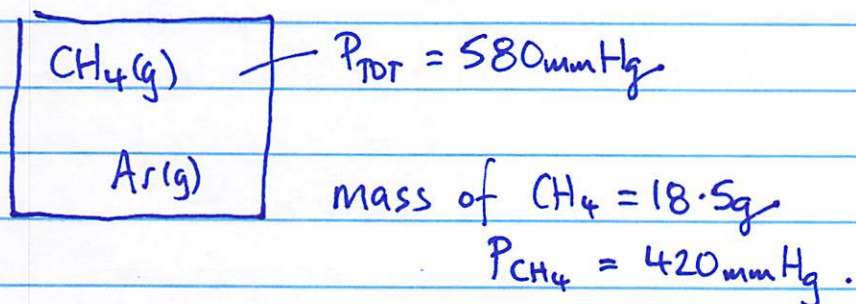 CH₄(g) P_TOT = 580mmHg.
Ar(g)
mass of CH₄ = 18.5g.
P_CH₄ = 420mmHg.